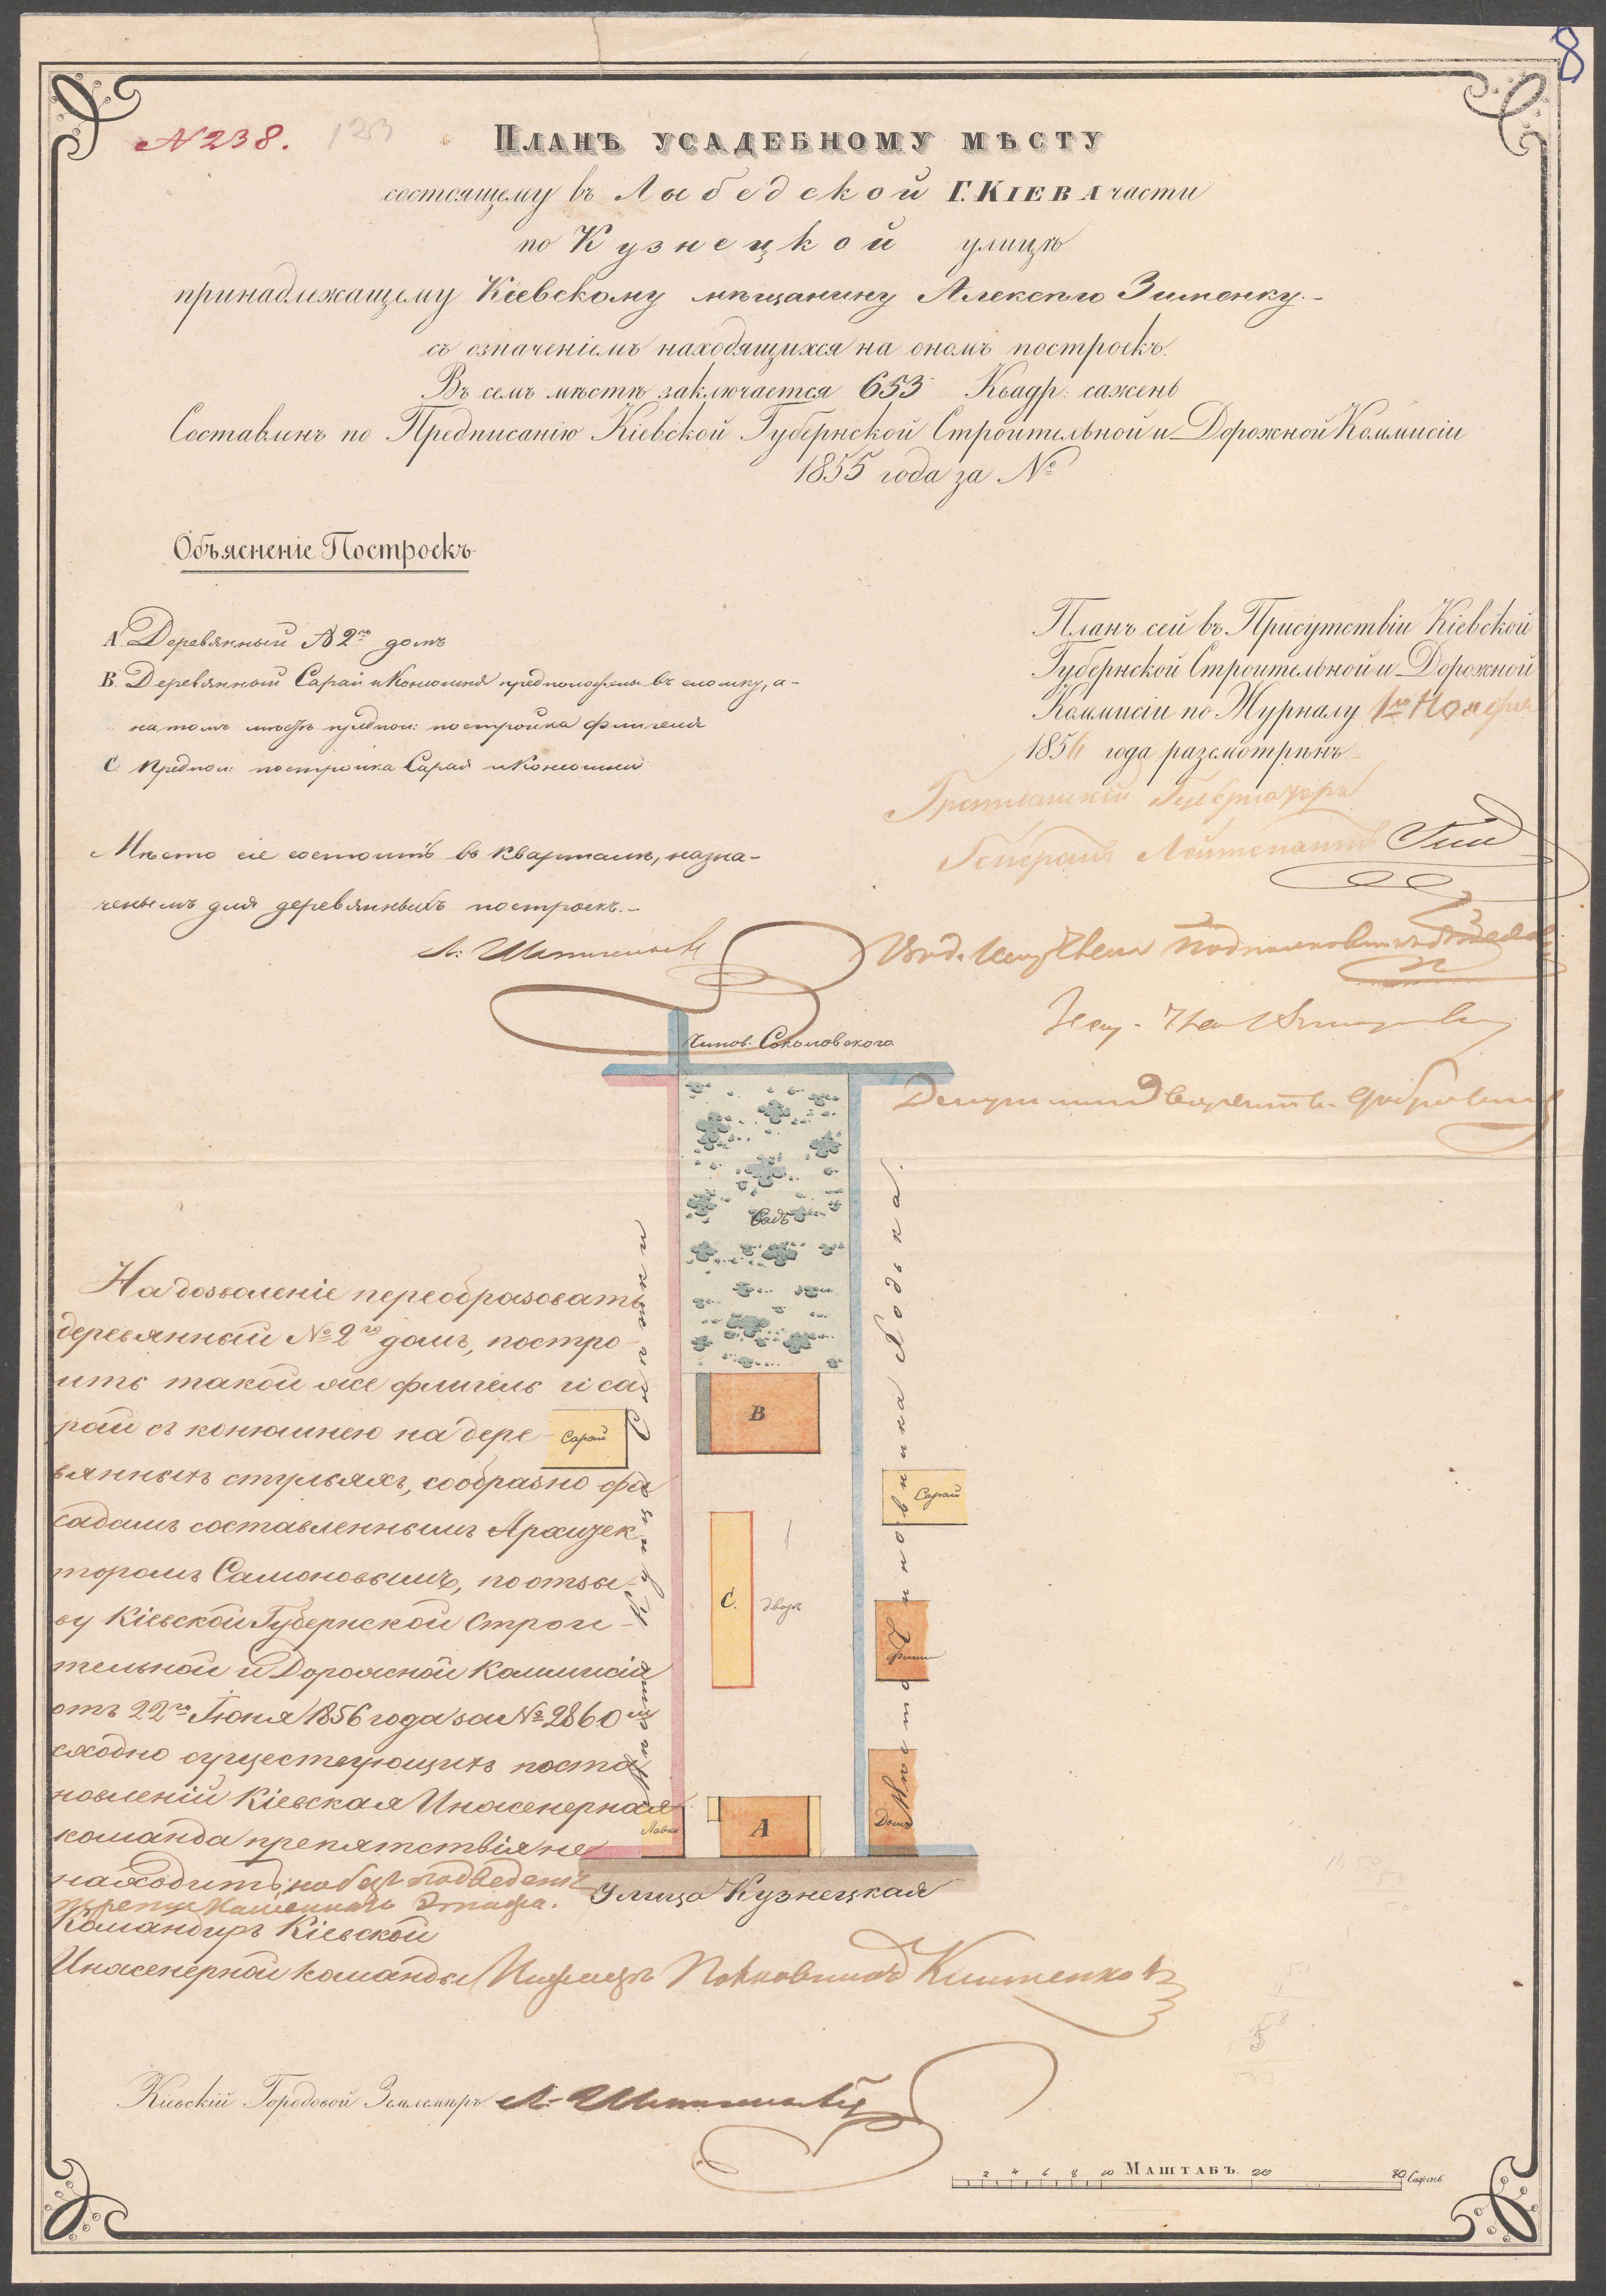 8
N 238.
123
ПЛАНЪ УСАДЕБНОМУ МѢСТУ
состоящему въ Лыбедской Г. КІЕВА части
по Кузнецкой улицѣ
принадлежащему Кіевскому мѣщанину Алексѣю Зименку.-
съ означеніемъ находящихся на ономъ построекъ.
Въ семъ мѣстѣ заключается 653 Квадр: сажень
Составленъ по Предписанію Кіевской Губернской Строительной и Дорожной Коммисіи
1855 года за №
Объясненіе Построекъ
А. Деревянный № 2го домъ
В. Деревянный Сарай и Конюшня предположены въ сломку, а-
на томъ мѣстѣ предпол: постройка флигеля
С. Предпол: постройка Сарая и Конюшни
Мѣсто сіе состоитъ въ кварталѣ, назна-
ченымъ для деревянныхъ построекъ.-
Планъ сей въ Присутствіи Кіевской
Губернской Строительной и Дорожной
Коммисіи по Журналу 1го Ноября
1856 года разсмотрѣнъ.
Гражданскій Губернаторъ
Генералъ Лейтенантъ
Подполковникъ
Чинов. Соколовскаго.
Садъ
В
Сарай
Сарай
С.
дворъ
Флиг
Лавка
А
Домъ
Мѣсто Купца Сѣптки
Мѣсто Чиновника Лодька.
Улица Кузнецкая
На дозволеніе переобразовать
деревянный № 2го домъ, постро-
ить такой же флигель и са-
рай съ конюшнею на дере-
вянныхъ стульяхъ, сообразно фа
садамъ составленнымъ Архитек
торомъ Самоновымъ, по отзы-
ву Кіевской Губернской Строи-
тельной и Дорожной Коммисіи
отъ 22го Іюня 1856 года за № 2860м
сходно существующихъ поста
новленій Кіевская Инженерная
команда препятствія не
находитъ, но безъ подведенія
каменнаго этажа.
Командиръ Кіевской
Инженерной команды Инженеръ Полковникъ
Кіевскій Городовой Землемѣръ
2 4 6 8 10 МАШТАБЪ. 20 30 Сажень